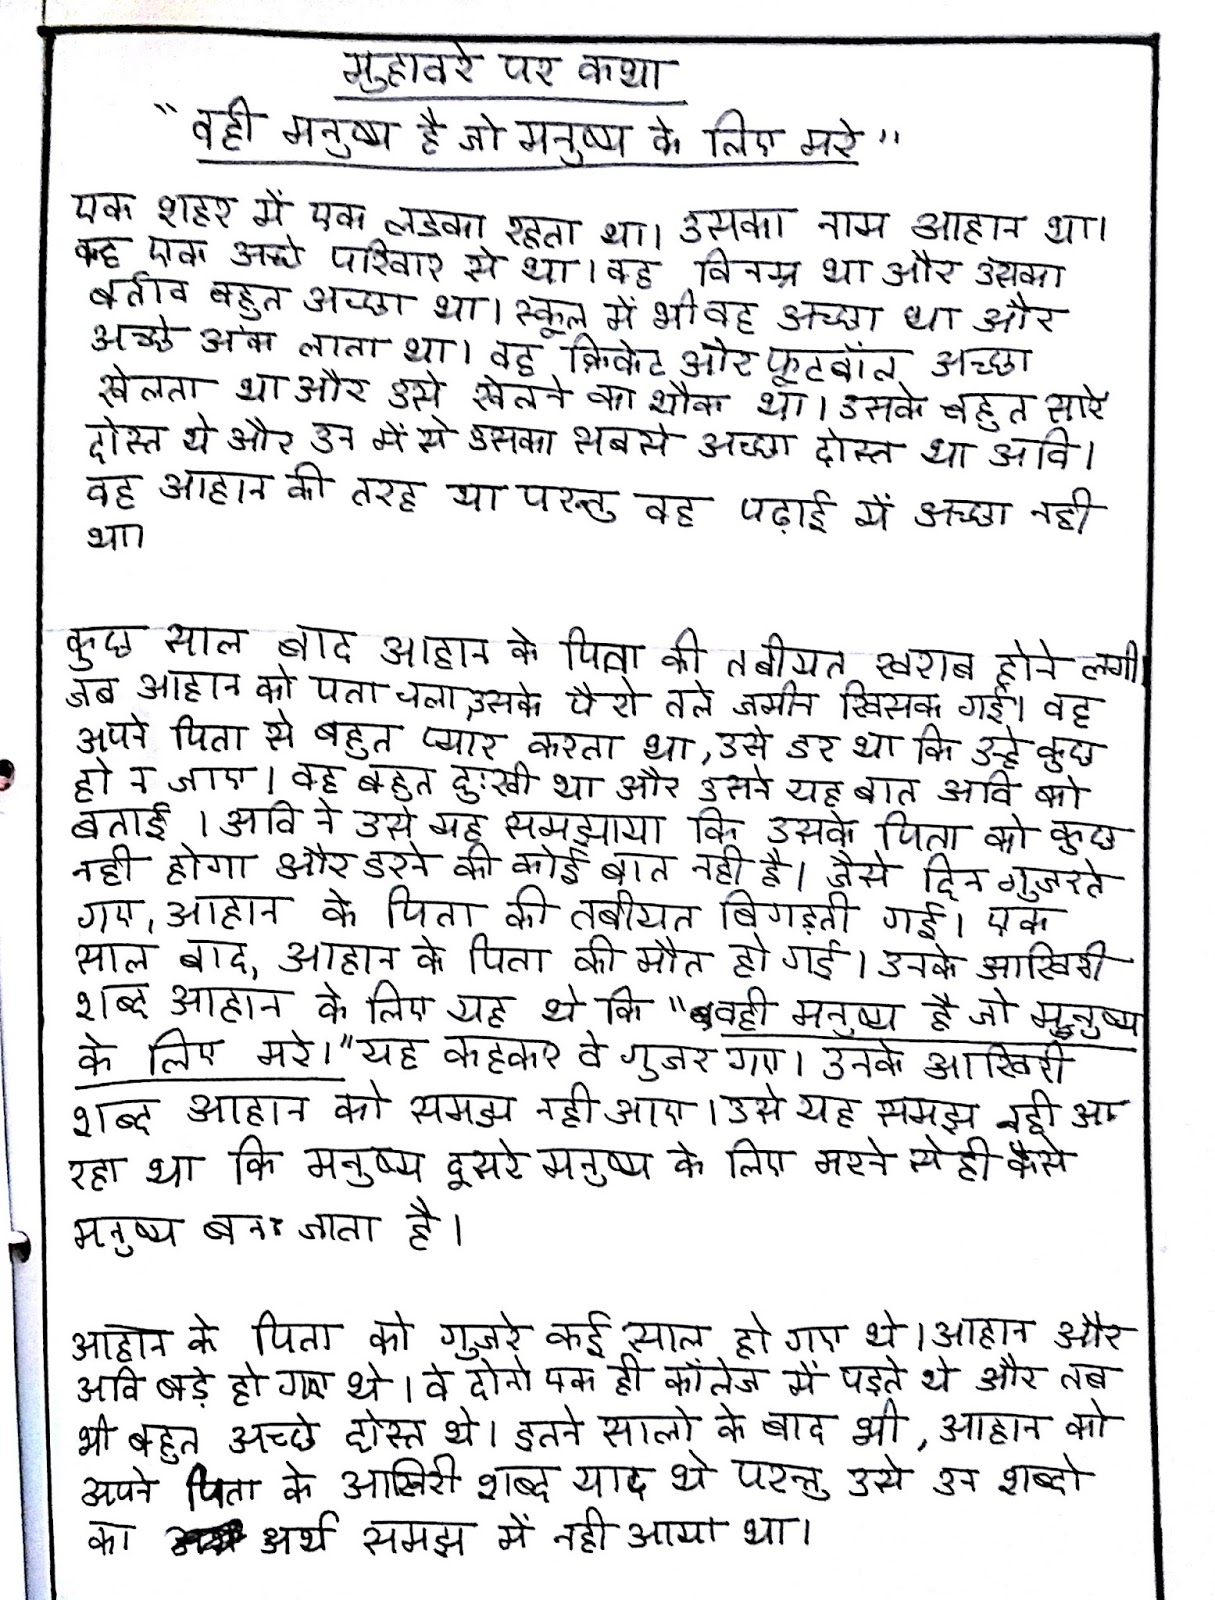 मुहावरे पर कथा
"वही मनुष्य है जो मनुष्य के लिए मरे"
एक शहर में एक लडका रहता था। उसका नाम आहान था।
वह एक अच्छे परिवार से था। वह विनम्र था और उसका
बर्ताव बहुत अच्छा था। स्कूल में भी वह अच्छा था और
अच्छे अंक लाता था। वह क्रिकेट और फूटबॉल अच्छा
खेलता था और उसे खेलने का शौक था। उसके बहुत सारे
दोस्त थे और उन में से उसका सबसे अच्छा दोस्त था अवि।
वह आहान की तरह था परन्तु वह पढ़ाई में अच्छा नही
था।
कुछ साल बाद आहान के पिता की तबीयत खराब होने लगी
जब आहान को पता चला, उसके पैरो तले जमीन खिसक गई। वह
अपने पिता से बहुत प्यार करता था, उसे डर था कि उन्हे कुछ
हो न जाए। वह बहुत दुःखी था और उसने यह बात अवि को
बताई। अवि ने उसे यह समझाया कि उसके पिता को कुछ
नही होगा और डरने की कोई बात नही है। जैसे दिन गुजरते
गए, आहान के पिता की तबीयत बिगड़ती गई। एक
साल बाद, आहान के पिता की मौत हो गई। उनके आखिरी
शब्द आहान के लिए यह थे कि "वही मनुष्य है जो मनुष्य
के लिए मरे।" यह कहकर वे गुजर गए। उनके आखिरी
शब्द आहान को समझ नही आए। उसे यह समझ नही आ
रहा था कि मनुष्य दूसरे मनुष्य के लिए मरने से ही कैसे
मनुष्य बन जाता है।
आहान के पिता को गुजरे कई साल हो गए थे। आहान और
अवि बड़े हो गए थे। वे दोनो एक ही कॉलेज में पड़ते थे और तब
भी बहुत अच्छे दोस्त थे। इतने सालो के बाद भी, आहान को
अपने पिता के आखिरी शब्द याद थे परन्तु उसे उन शब्दो
का अर्थ समझ में नही आया था।